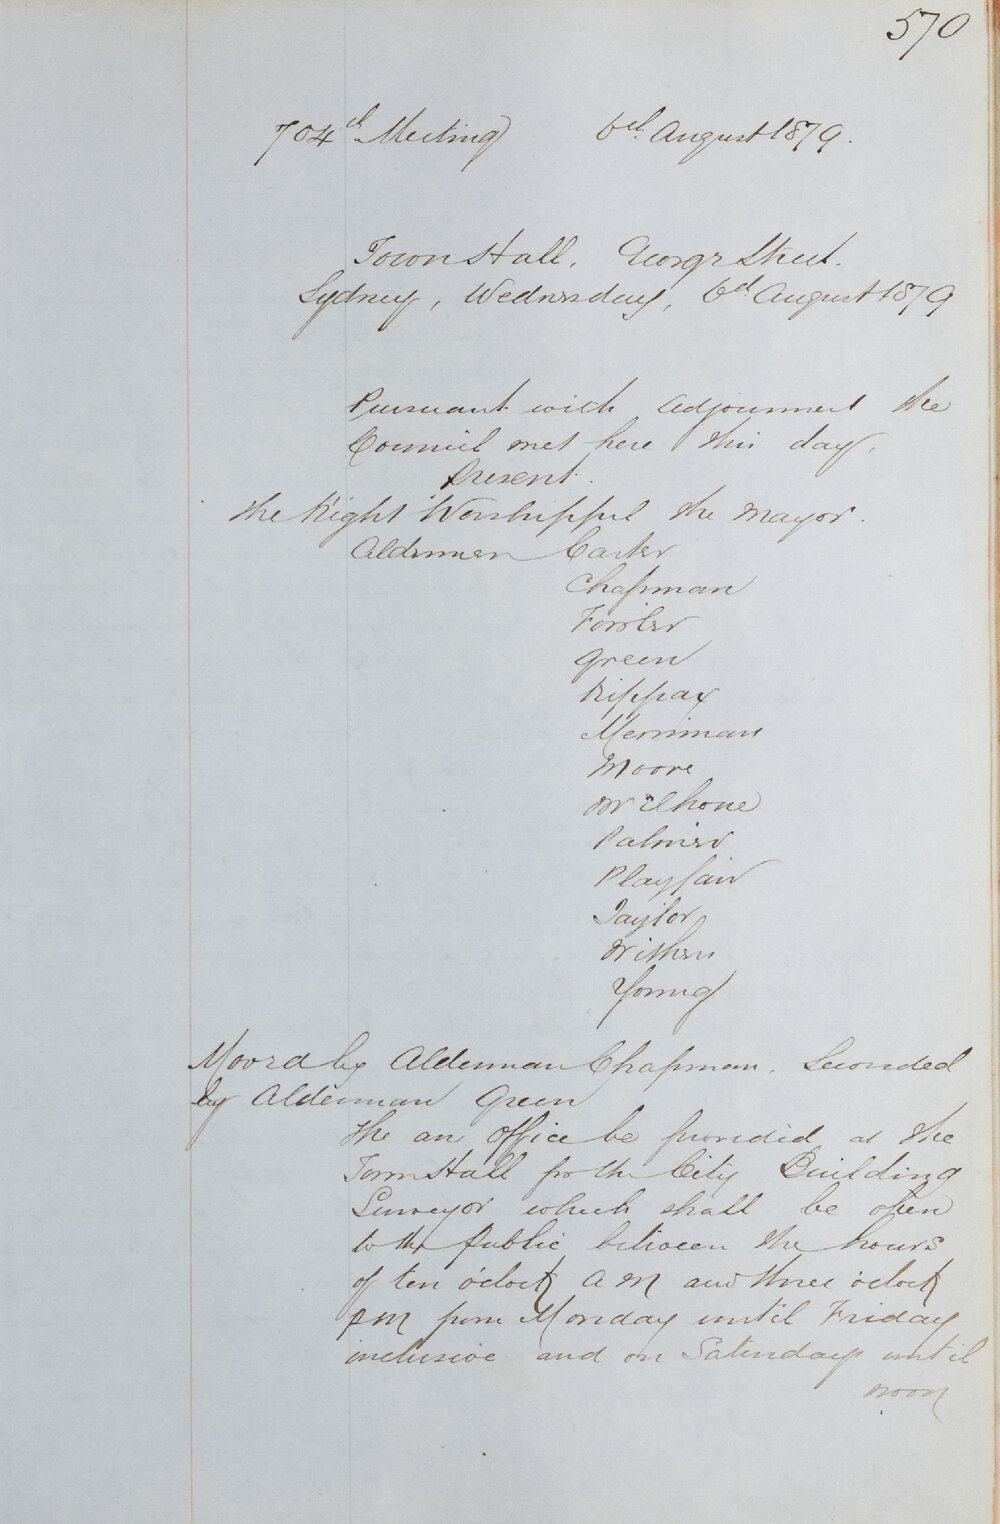 570
704th Meeting 6th August 1879.
Town Hall, George Street.
Sydney, Wednesday, 6th August 1879
Pursuant with adjournment the
Council met here this day.
Present.
The Right Worshipful the Mayor.
Aldermen Carter
Chapman
Fowler
Green
Kippax
Merriman
Moore
McElhone
Palmer
Playfair
Taylor
Withers
Young
Moved by Alderman Chapman. Seconded
by Alderman Green
The an Office be provided at the
Town Hall for the City Building
Surveyor which shall be open
to the public between the hours
of ten o'clock A M and three o'clock
P M from Monday until Friday
inclusive and on Saturdays until
noon